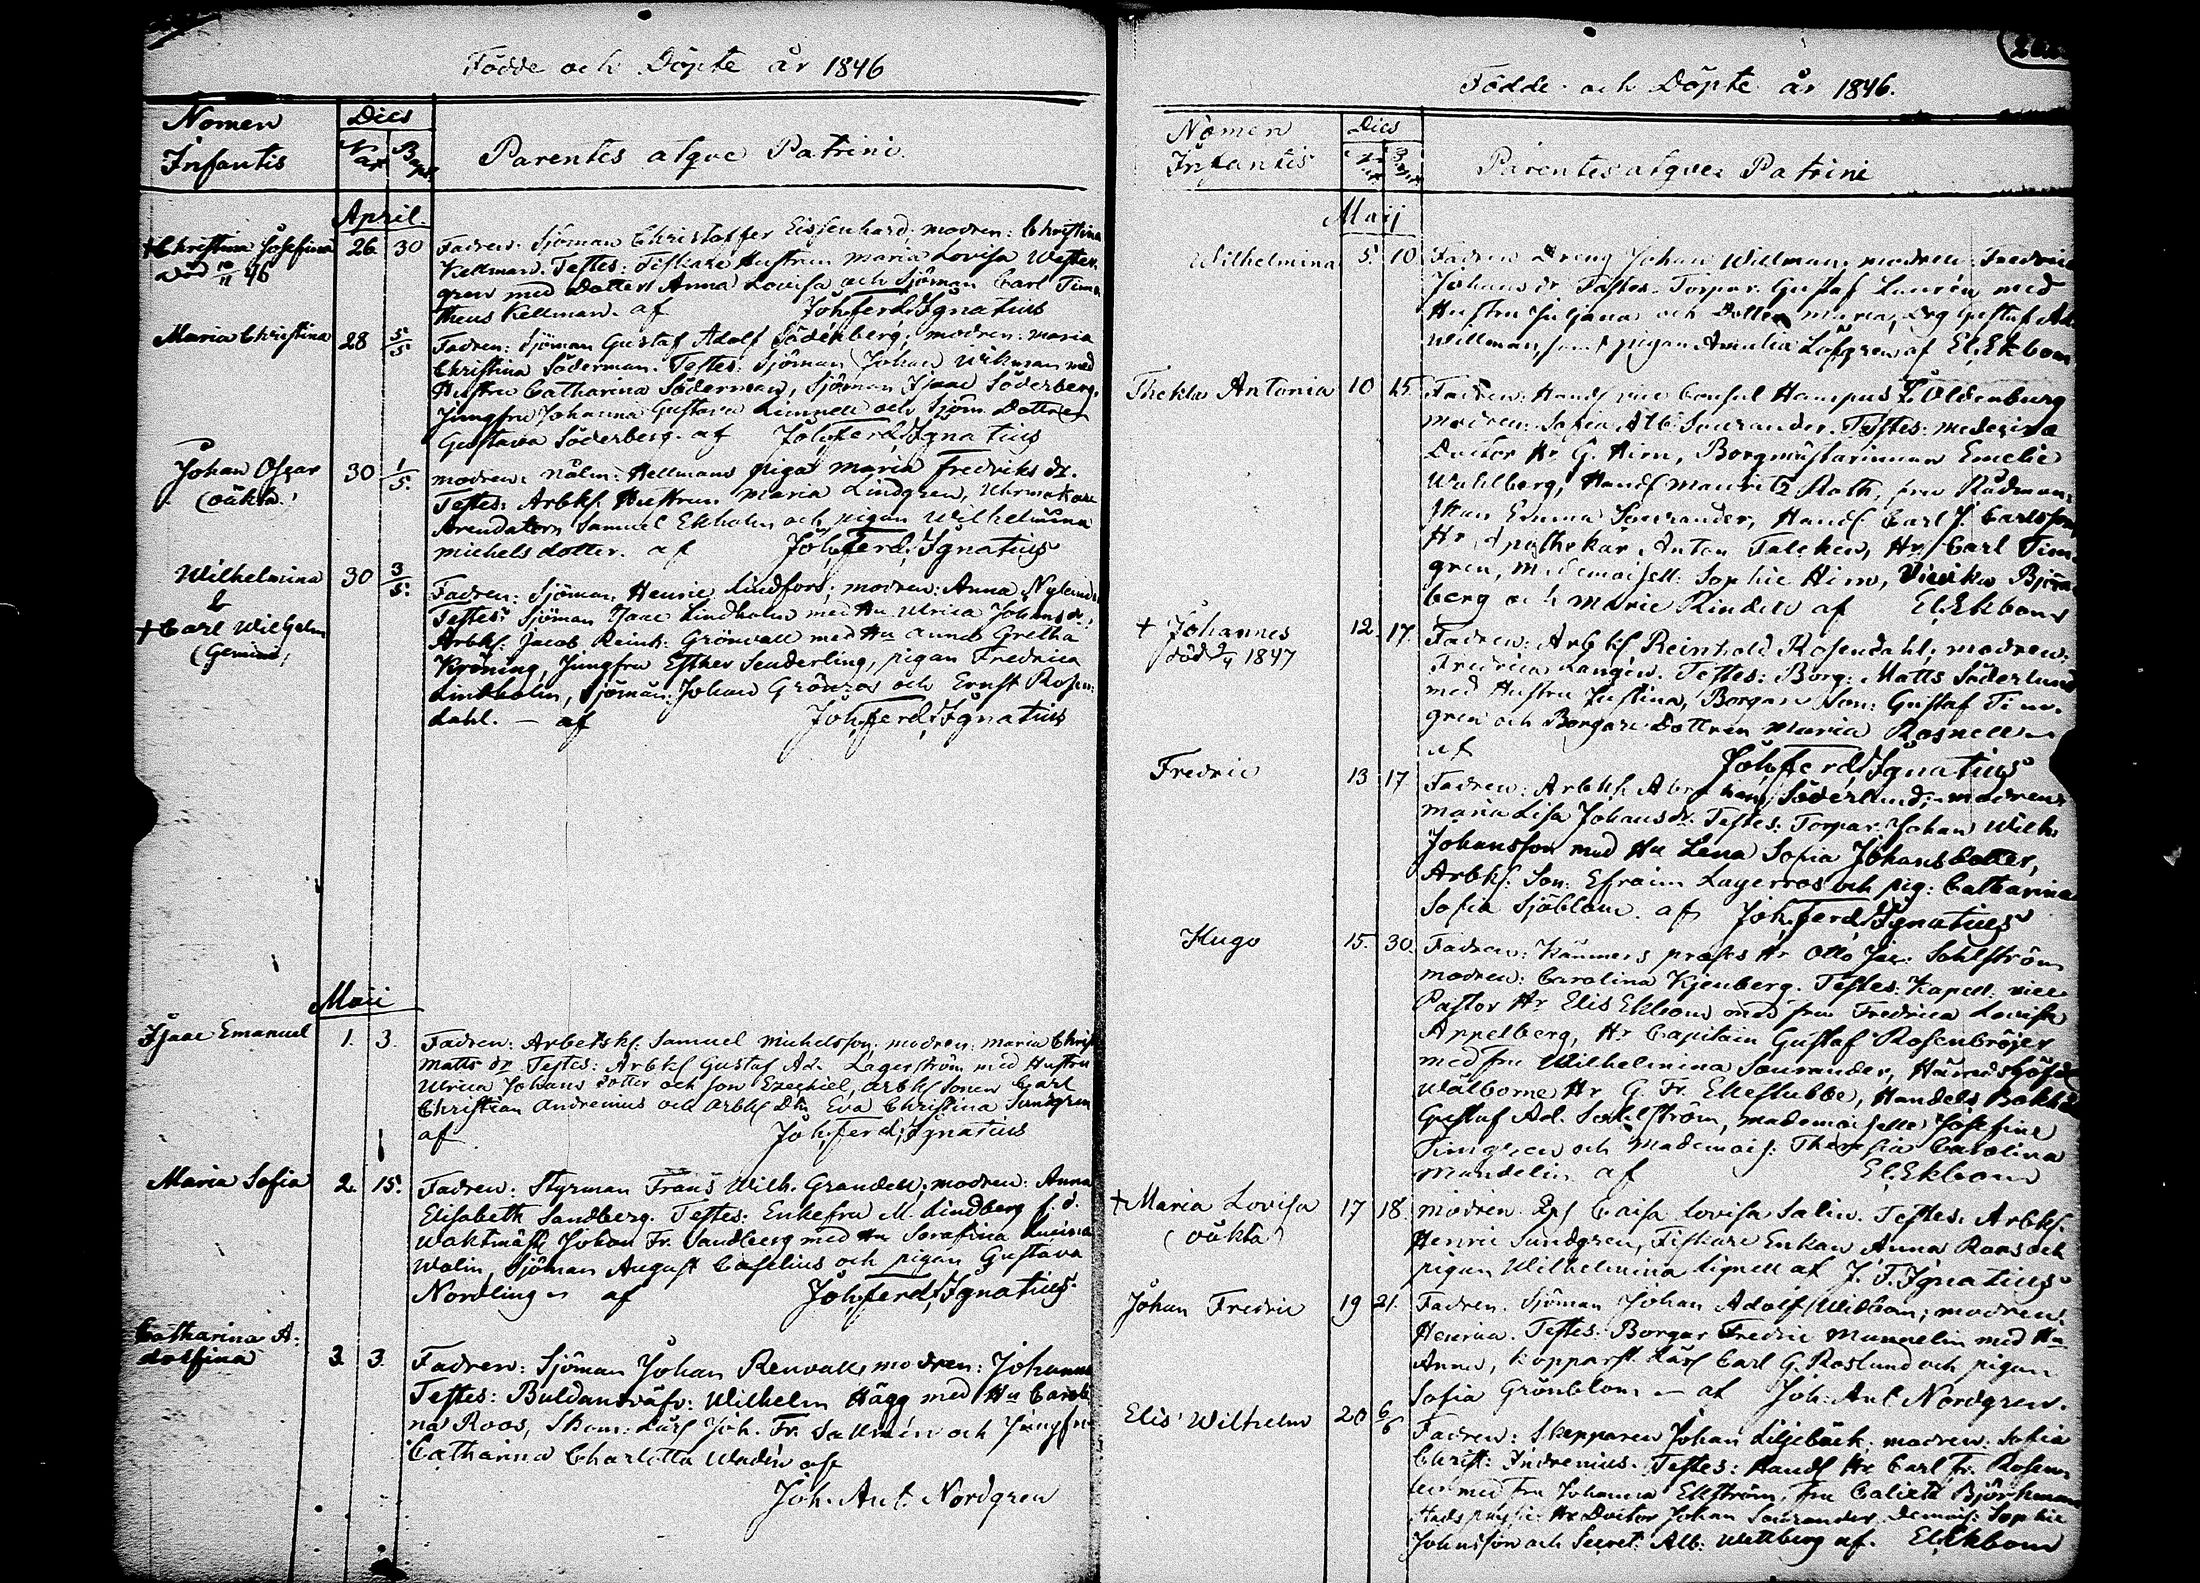 Födde och Döpte år 1846
Nomen Infantis
Dies
Nat.
Bapt.
Parentes atque Patrini.
April.
+Christina Josefina 26 30 Fadren: Sjöman Christoffer Eissenhard; modren: Christina
död 10/11 46 Kellman. Testes: Fiskare Hustrun Maria Lovisa Wester
gren med Dotter Anna Lovisa och Sjöman Carl Timo
theus Kellman. af Joh. Ferd. Ignatius
Maria Christina 28 5/5 Fadren: Sjöman Gustaf Adolf Söderberg; modren: Maria
Christina Söderman. Testes: Sjöman Johan Wikman med
Hustru Catharina Söderman, Sjöman Isaac Söderberg,
Jungfru Johanna Gustava Linnell och Sjöm. Dottren
Gustava Söderberg. af Joh. Ferd. Ignatius
Johan Oscar 30 1/5. modren: Hellmans piga Maria Fredriks dr.
(oäkta.) Testes: Arbkf. Hustrun Maria Lindgren, Uhrmakare
Arendatorn Samuel Ekholm och pigan Wilhelmina
Michelsdotter. af Joh. Ferd. Ignatius
Wilhelmina 30 3/5. Fadren: Sjöman Henric Lindfors; modren: Anna Nylund
& Testes: Sjöman Isaac Lindholm med Hu Ulrica Johans dr,
+ Carl Wilhelm Arbkf. Jacob Reinh. Grönvall med Hu Anna Gretha
(Gemini) Kröning, Jungfru Esther Senderling, pigan Fredrica
Lindholm, Sjöman: Johan Grönroos och Ernst Rosen:
dahl. — af Joh. Ferd. Ignatius
Maii
Isaac Emanuel 1. 3. Fadren: Arbetskf. Samuel Michelsson; modren: Maria Christ
Matts dr. Testes: Arbkf Gustaf Ad. Lagerström med Hustru
Ulrica Johans dotter och son Ezechiel, arbkf sonen Carl
Christian Andrenius och arbkf Dtn Eva Christina Sundgren
af Joh. Ferd. Ignatius
Maria Sofia 2. 15. Fadren: Styrman Frans Wilh. Grandell; modren: Anna
Elisabeth Sandberg. Testes: Enkefru M. Lindberg f. d.
Waktmäst Johan Fr. Sandberg med Hu Serafina Lucina
Walin, Sjöman August Caselius och pigan Gustava
Nordling af Joh. Ferd. Ignatius.
Catharina A:
dolfina 3. 3. Fadren: Sjöman Johan Renvall, modren: Johanna
Testes: Buldansväfv: Wilhelm Hägg med Hu Caroli
na Roos, Skom: Lärl Joh. Fr. Sallmén och Jungfru
Catharina Charlotta Wadén af
Joh. Ant. Nordgren
Födde och Döpte år 1846.
Nomen Infantis
Dies
Nat.
Bapt.
Parentes atque Patrini
Maij
Wilhelmina 5. 10 Fadren Dreng Johan Willman; modren: Fredrica
Johans dr. Testes. Torpar. Gustaf Laurén med
Hustru Juliana och Dotter Maria, Drg Gustaf Ad.
Willman, samt pigan Amalia Löfgren af El. Ekbom
Thekla Antonia 10 15 Fadren: Handl. vice Consul Hampus J. Oldenburg
modren: Sofia Alb. Sourander. Testes: medecine
Doctor Hr G. Hirn, Borgmästarinnan Emelie
Wahlberg, Handl Mauritz Roth, fru Rådman:
skan Emma Sourander, Handl: Carl J. Carlsson,
Hr Apothekar. Anton Falcken, Hr Carl Tim
gren, Mademoisell: Sophie Hirn, Vivika Björn
berg och Marie Rindell af El. Ekbom
+ Johannes 12. 17. Fadren: Arbkf Reinhold Rosendahl; modren:
död 9/4 1847 Fredrica Langén. Testes: Borg: Matts Söderlund
med Hustru Justina, Borgare Son: Gustaf Tim
gren och Borgare Dottren Maria Rosnell
af Joh. Ferd. Ignatius
Fredric 13 17 Fadren: Arbkf. Abraham Söderlund; modren:
Maria Lisa Johans dr. Testes: Torpar Johan Wilh.
Johansson med Hu Lena Sofia Johansdotter,
Arbkf. Son: Efraim Lagerroos och pig: Catharina
Sofia Sjöblom. af Joh. Ferd. Ignatius
Hugo 15. 30. Fadren: Kämners præses Hr Otto Jac: Sohlström
modren: Carolina Kjenberg. Testes: Kapell: vice
Pastor Hr Elis Ekbom med fru Fredrica Lovisa
Appelberg, Hr Capitain Gustaf Rosenbröijer
med fru Wilhelmina Sourander, Häradshöfd
Wälborne Hr G. Fr. Ekestubbe, Handels Bokh
Gustaf Ad. Sohlström, Mademoiselle Josefine
Timgren och Mademois: Theresia Carolina
Mundelin af El. Ekbom
+ Maria Lovisa 17 18. modren: Caisa Lovisa Salin. Testes: Arbkf.
(oäkta) Henric Sundgren, Fiskare Enkan Anna Roos och
pigan Wilhelmina Lignell af J. F. Ignatius
Johan Fredric 19 21. Fadren. Sjöman Johan Adolf Widbom; modren:
Henrica. Testes: Borgar Fredric Mannelin med Hu
Anna, kopparsl. Lärl Carl G. Roslund och pigan
Sofia Grönblom — af Joh. Ant. Nordgren.
Elis Wilhelm 20 6/6 Fadren: Skepparen Johan Liljebäck. modren: Sofia
Christ: Indrenius. Testes: Handl Hr Carl Fr. Rosen
med fru Johanna Ekström, fru Calixta Björkman
Hr Doctor Johan Sourander, Demois: Sophie
Johnsson och Secret: Alb: Wettberg af. El. Ekbom